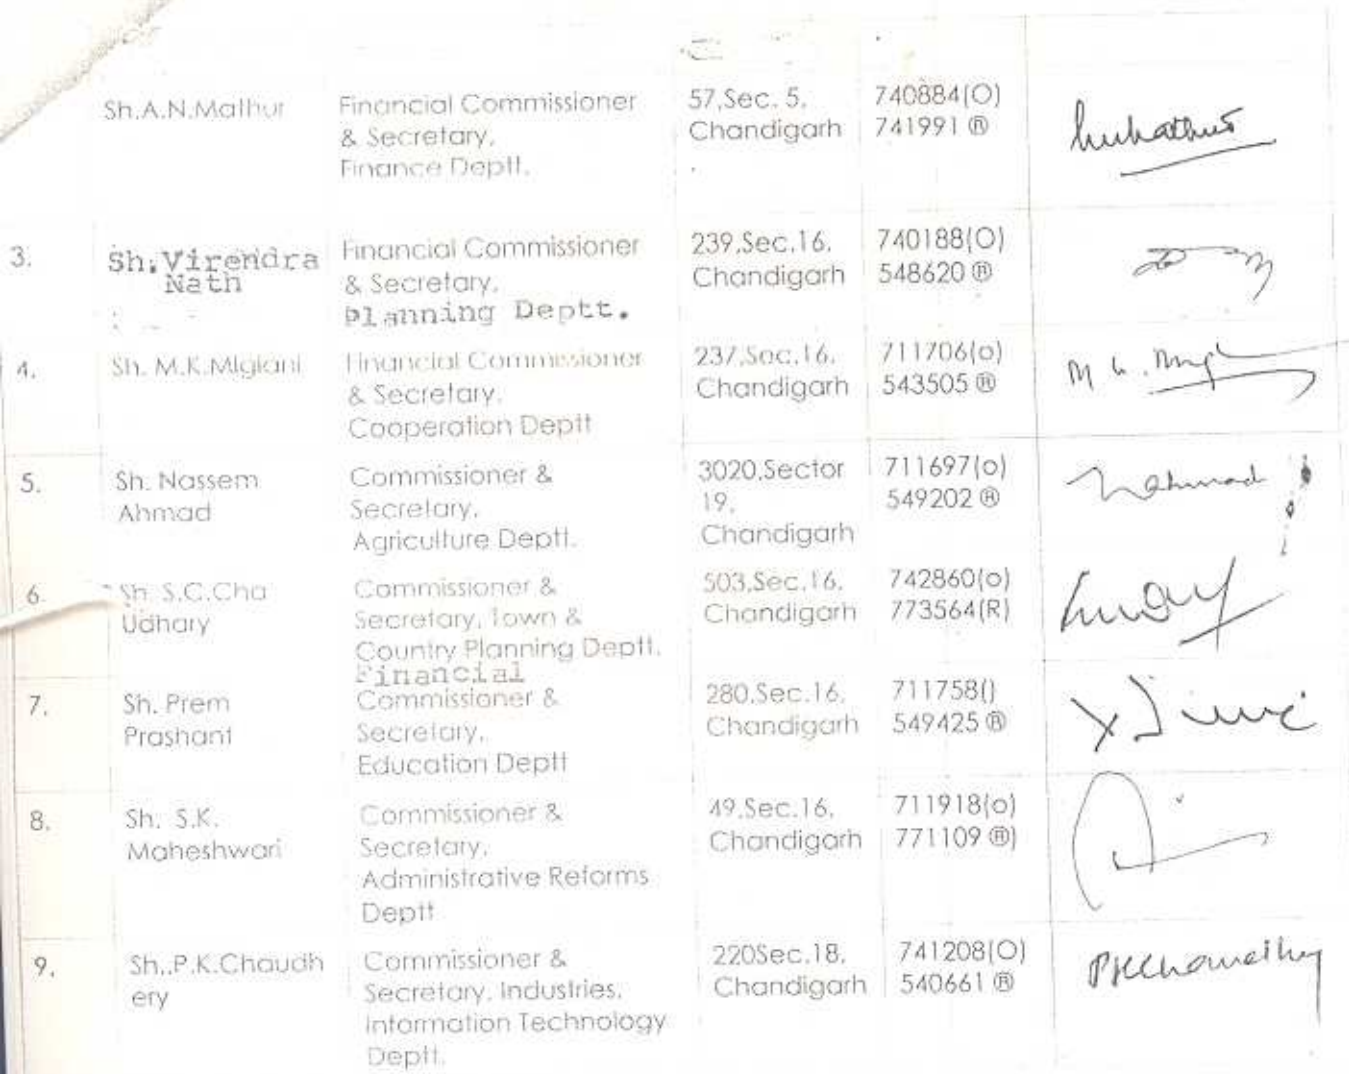 Sh.A.N.Mathur
Financial Commissioner
& Secretary,
Finance Deptt.
57,Sec. 5,
Chandigarh
740884(O)
741991 ®
3.
Sh.Virendra
Nath
Financial Commissioner
& Secretary,
Planning Deptt.
239,Sec.16,
Chandigarh
740188(O)
548620 ®
4.
Sh. M.K.Miglani
Financial Commissioner
& Secretary,
Cooperation Deptt
237,Sec.16,
Chandigarh
711706(o)
543505 ®
5.
Sh. Nassem
Ahmad
Commissioner &
Secretary,
Agriculture Deptt.
3020,Sector
19,
Chandigarh
711697(o)
549202 ®
nahmad
6.
Sh. S.C.Cha
Udhary
Commissioner &
Secretary, Town &
Country Planning Deptt.
503,Sec.16,
Chandigarh
742860(o)
773564(R)
7.
Sh. Prem
Prashant
Financial
Commissioner &
Secretary,
Education Deptt
280,Sec.16,
Chandigarh
711758()
549425 ®
8.
Sh. S.K.
Maheshwari
Commissioner &
Secretary,
Administrative Reforms
Deptt
49,Sec.16,
Chandigarh
711918(o)
771109 ®)
9.
Sh,.P.K.Chaudh
ery
Commissioner &
Secretary, Industries,
Information Technology
Deptt.
220Sec.18,
Chandigarh
741208(O)
540661 ®
PKChowdhey